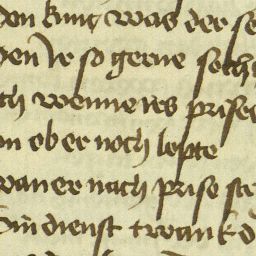 den kunig was der se
den Ir so gerne secht
ch wenne irs prise
on ob er noch lepte
wan er nach prise ste
Sin dienst twank d